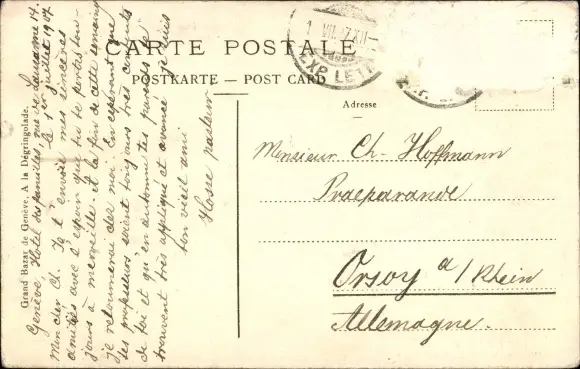 CARTE POSTALE
POSTKARTE — POST CARD
1. VII. 07. XII—
EXP. LETT
Adresse
Monsieur Ch. Hoffmann
Praeparande
Orsoy a/Rhein
Allemagne.
Grand Bazar de Genève, A la Dégringolade.
Genève Hôtel des familles, rue de Lausanne 14.
le 1er juillet 1907
Mon cher Ch. Je t'envoie mes sincères
amitiés avec l'espoir que tu te portes tou-
jours à merveille. et la fin de cette semaine
je retournerai chez moi. En espérant que
tes professeurs soient toujours très contents
de toi et qu'en automne tes parents te
trouvent très appliqué et avancé je suis
ton vieil ami
Hosse pasteur